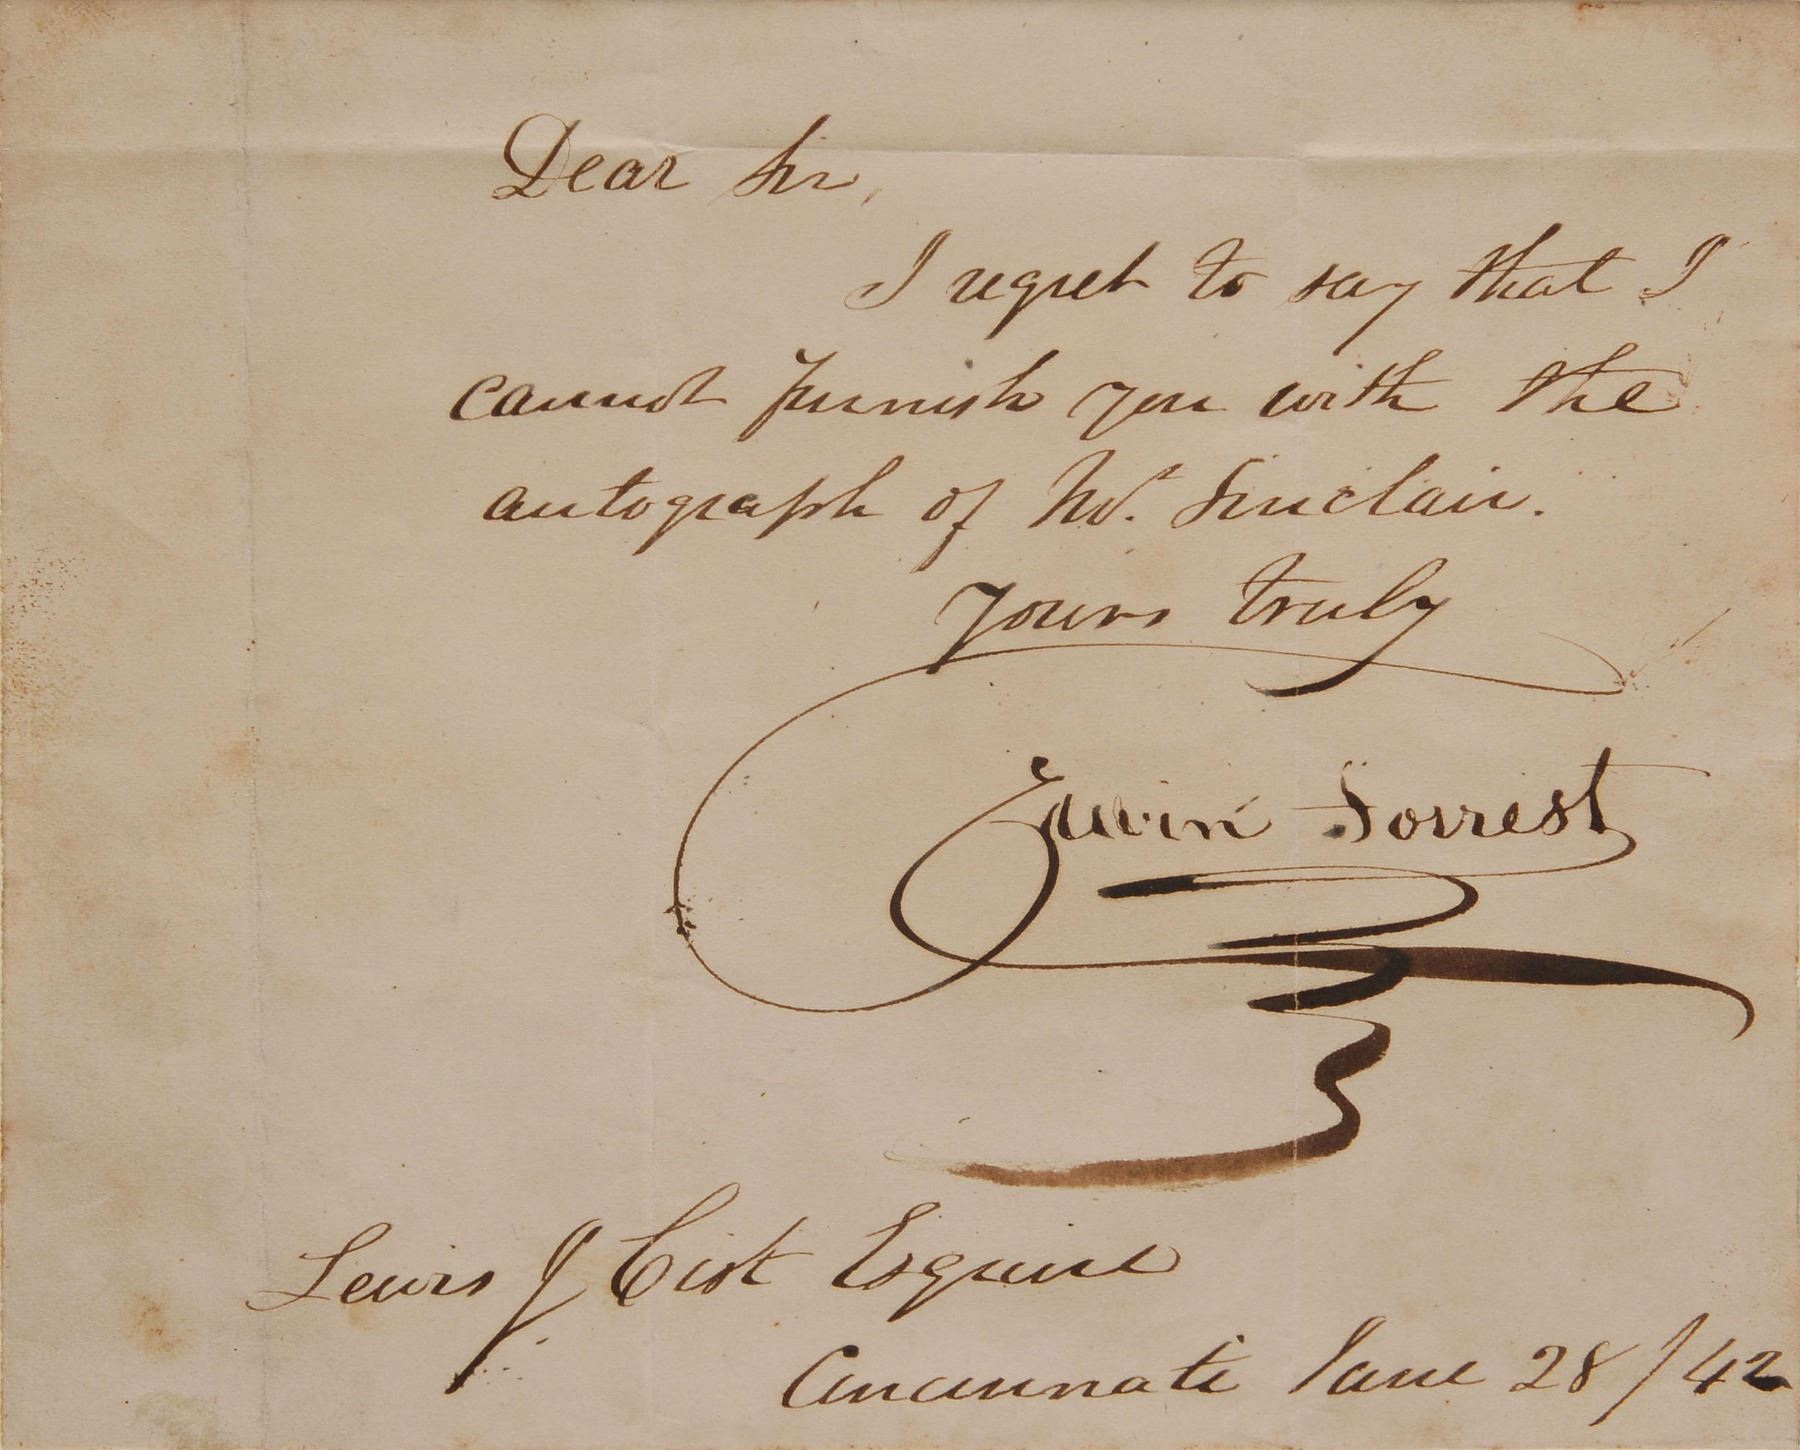 Dear Sir,
I regret to say that I
cannot furnish you with the
autograph of Mr. Sinclair.
Yours truly
Edwin Forrest
Lewis J Cist Esquire
Cincinnati June 28/42